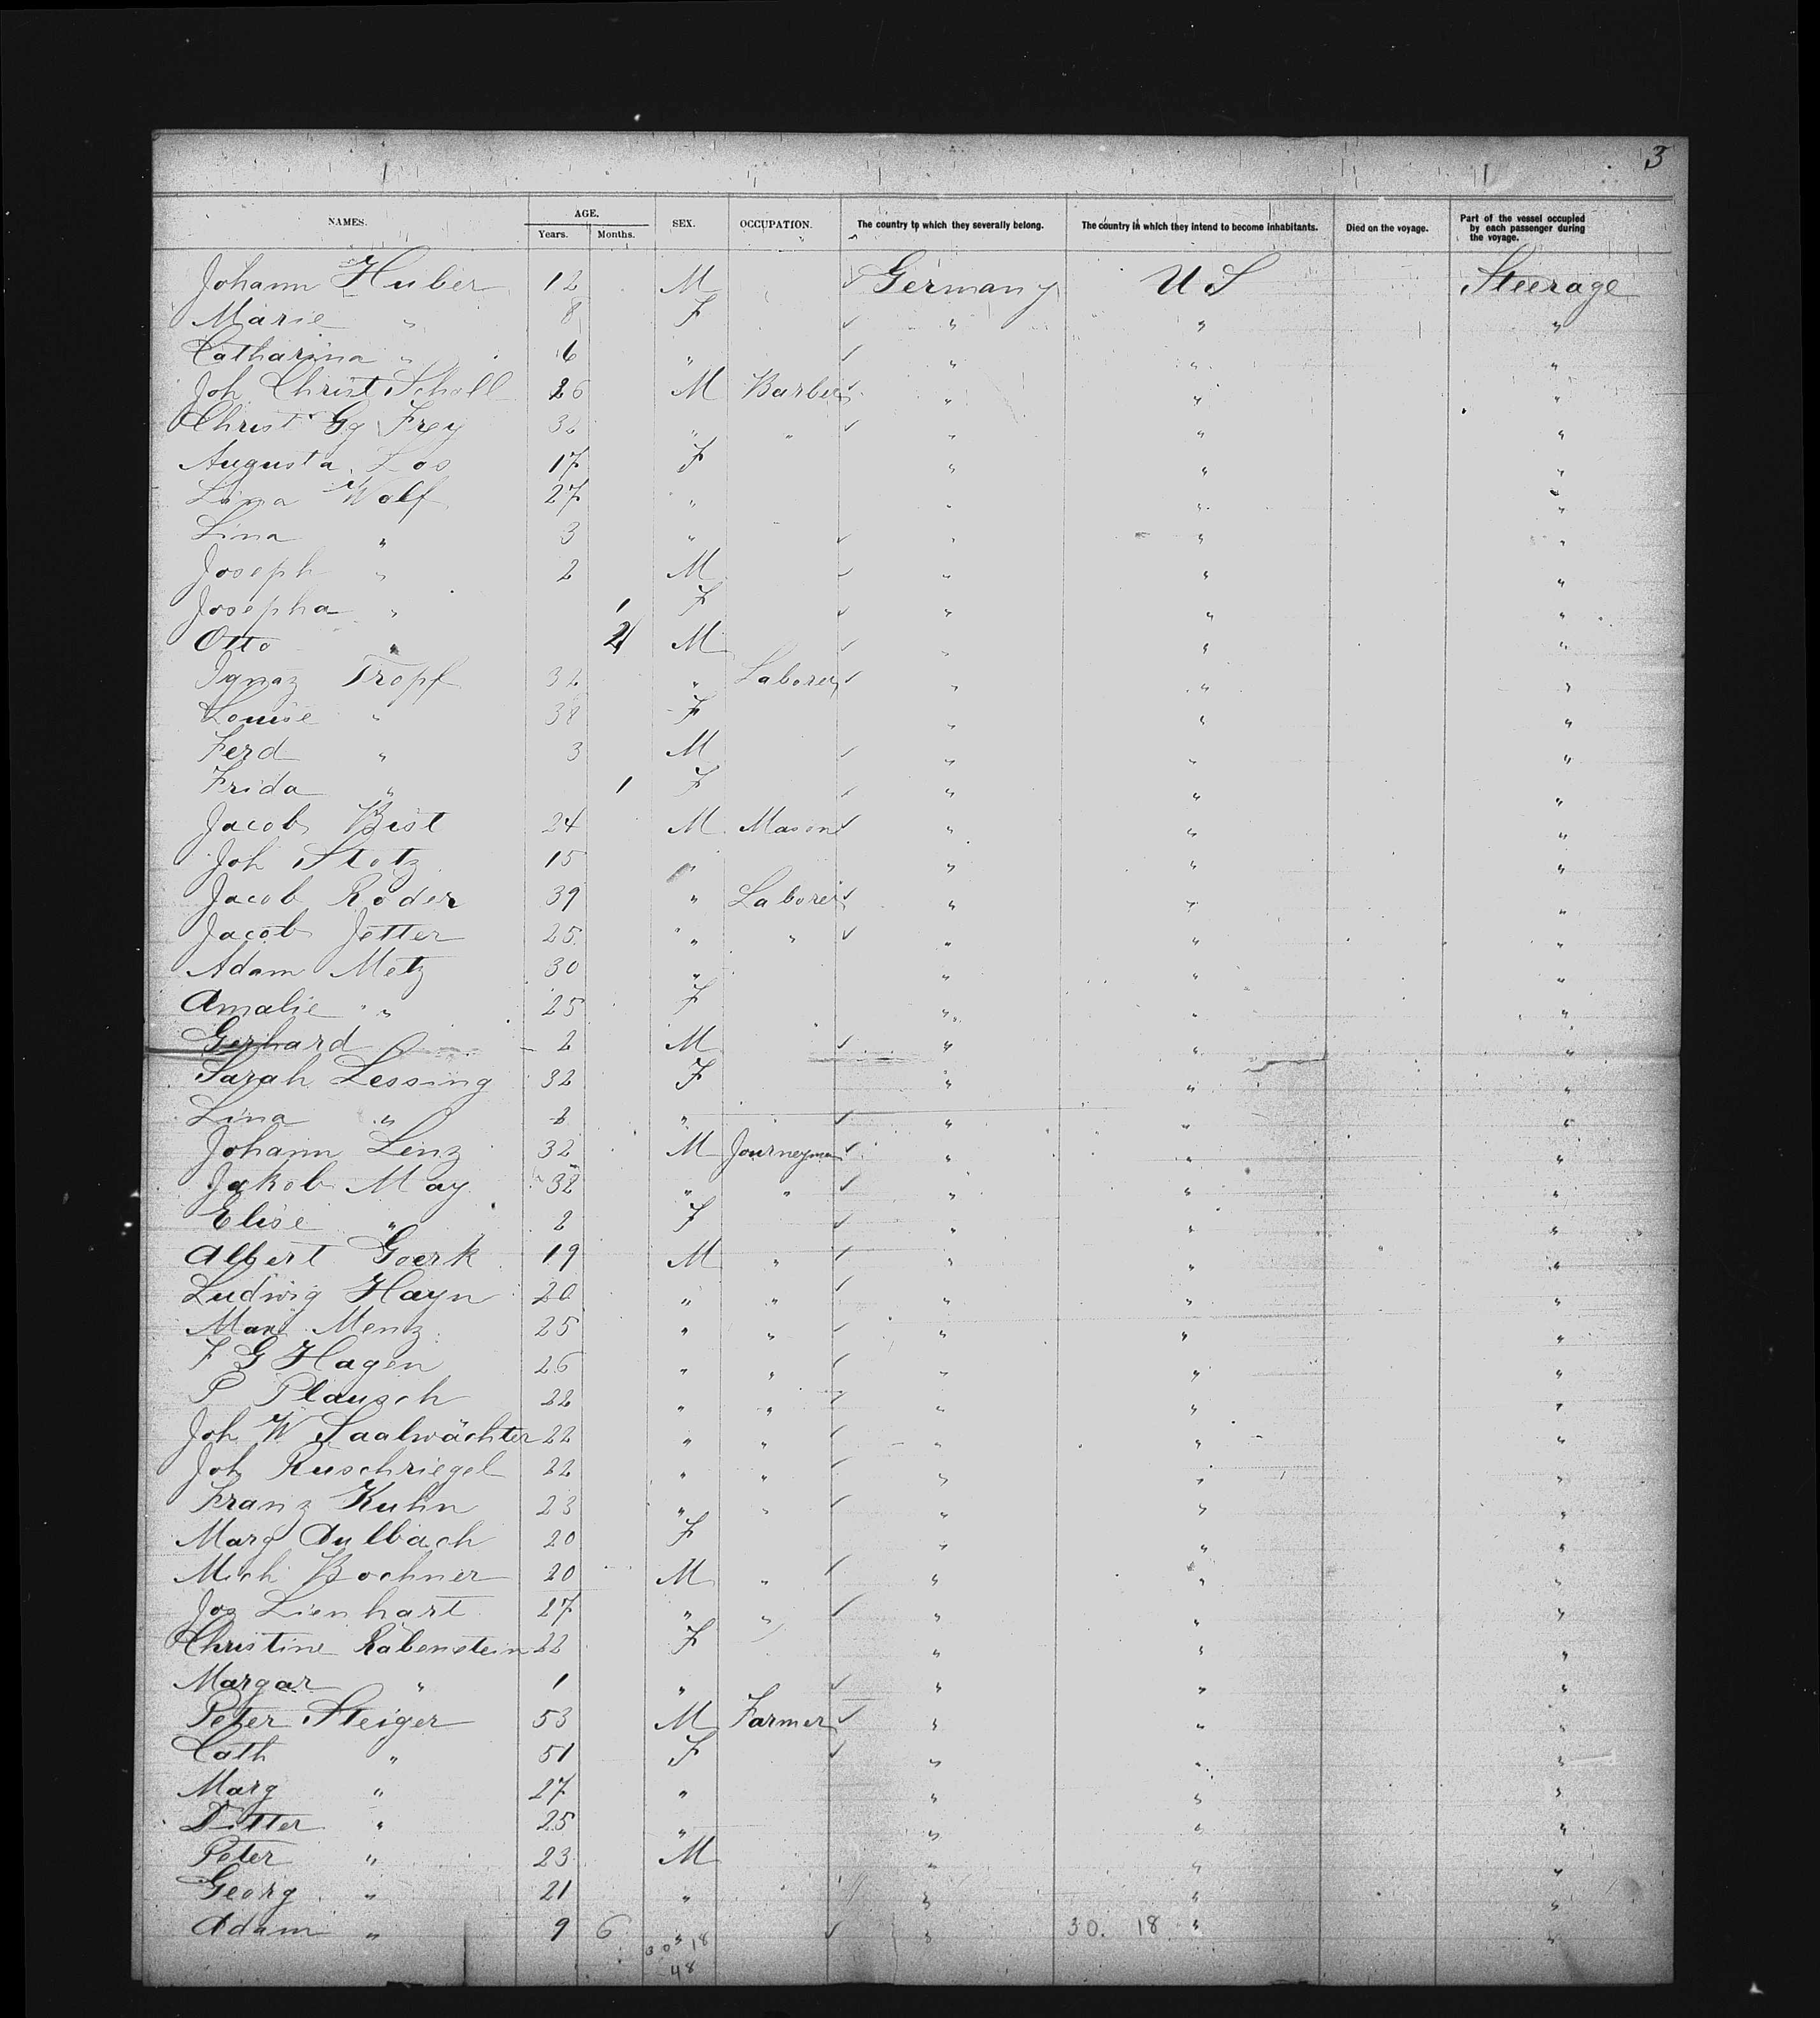 3
NAMES. AGE. Years. Months. SEX. OCCUPATION. The country to which they severally belong. The country in which they intend to become inhabitants. Died on the voyage. Part of the vessel occupied by each passenger during the voyage.
Johann Huber 12 M Germany U S Steerage
Marie " 8 F " " "
Catharina " 6 " " " "
Joh Christ Scholl 26 M Barber " " "
Christ Gg Frey 32 " " " " "
Augusta Los 17 F " " "
Lina Wolf 27 " " " "
Lina " 3 " " " "
Joseph " 2 M " " "
Josepha " 1 F " " "
Otto " 2 M " " "
Ignaz Tropf 32 " Laborer " " "
Louise " 38 F " " "
Ferd " 3 M " " "
Frida " 1 F " " "
Jacob Bist 24 M Mason " " "
Joh Stotz 15 " " " "
Jacob Roder 39 " Laborer " " "
Jacob Jetter 25 " " " " "
Adam Metz 30 " " " "
Amalie " 25 F " " "
Gerhard 2 M " " "
Sarah Lessing 32 F " " "
Lina " 2 " " " "
Johann Lenz 32 M Journeyman " " "
Jakob May 32 " " " " "
Elise " 2 F " " "
Albert Goerk 19 M " " " "
Ludwig Hayn 20 " " " " "
Max Menz 25 " " " " "
F G Hagen 26 " " " " "
P Plausch 22 " " " " "
Joh W Saalwächter 22 " " " " "
Joh Ruschriegel 22 " " " " "
Franz Kuhn 23 " " " " "
Marg Aulbach 20 F " " "
Mich Bochner 20 M " " " "
Jos Lienhart 27 " " " " "
Christine Rabenstein 22 F " " "
Margar " 1 " " " "
Peter Steiger 53 M Farmer " " "
Cath " 51 F " " "
Marg " 27 " " " "
Ditter " 25 " " " "
Peter " 23 M " " "
Georg " 21 " " " "
Adam " 9 6 " " 30. 18 " "
30 18
48